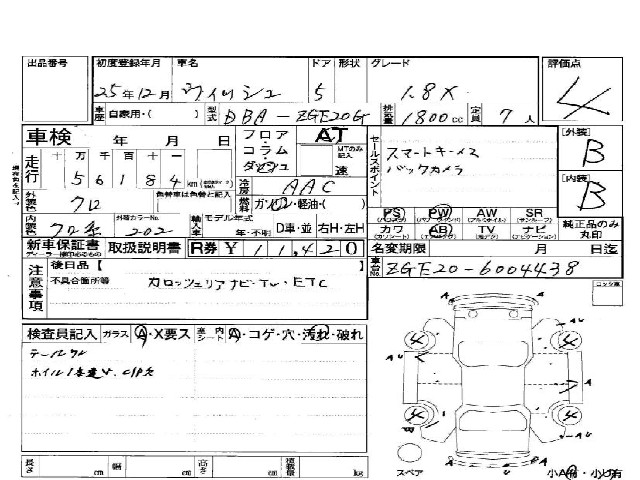 出品番号 初度登録年月 車名 ドア 形状 グレード 評価点
25年12月 ウィッシュ 5 1.8X 4
車歴 自家用・( ) 型式 DBA-ZGE20G 排気量 1800cc 定員 7人
車検 年 月 日 フロア コラム ダッシュ AT MTのみ記入 速 セールスポイント スマートキー×2 [外装] B
走行 十 万 千 百 十 一 バックカメラ
5 6 1 8 4 km 冷房 AAC [内装] B
外装色 クロ 色替車は色替と記入 燃料 ガソリン・軽油・( )
PS PW AW SR 純正品のみ丸印
内装色 クロ系 外装カラーNo. 202 輸入車 モデル年式 年・不明 D車・並 右H・左H カワ AB TV ナビ
新車保証書 取扱説明書 R券 ¥ 11,420 名変期限 月 日迄
注意事項 後日品【 車台No. ZGE20-6004438
不具合箇所等 カロッツェリアナビ・TV・ETC
検査員記入 ガラス A・X要ス 室内シート A・コゲ・穴・汚れ・破れ
テールワレ
長さ cm 幅 cm 高さ cm 積載量 kg スペア 小A有・小U有